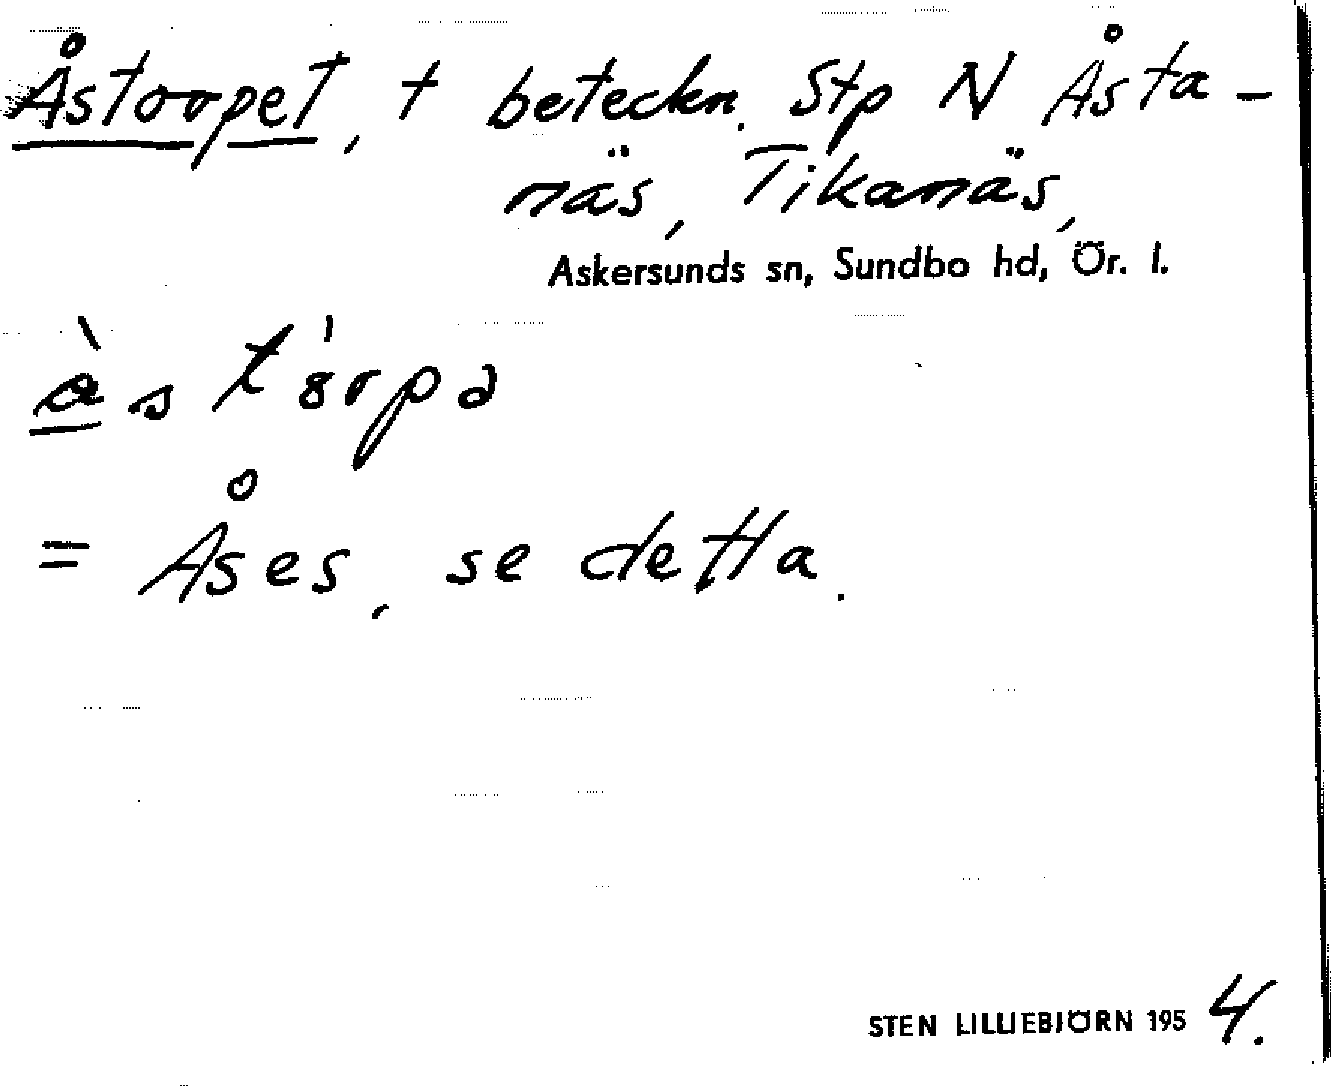 Åstorpet, † beteckn. Stp N Åsta-
näs, Tikanäs,
Askersunds sn, Sundbo hd, Ör. l.
= Åses, se detta.
STEN LILLIEBJÖRN 1954.